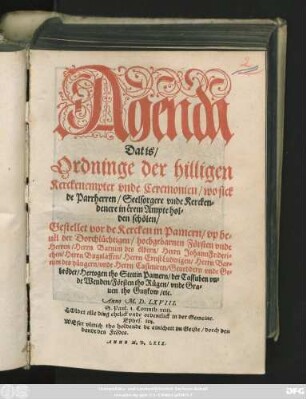 2
Agenda
Dat is/
Ordninge der hilligen
Kerckenempter vnde Ceremonien/ wo sick
de Parrherren/ Seelsorgere vnde Kercken-
denere in erem Ampte hol-
den schölen/
Gestellet vor de Kercken in Pamern/ vp be-
uel der Dorchlüchtigen/ hochgebarnen Försten vnde
Herren/ Herrn Barnim des Oldern/ Herrn Johann Frederi-
chen/ Herrn Bugslaffen/ Herrn Ernst Lüdwigen/ Herrn Bar-
nim des Jüngern/ vnde Herrn Casimiren/ Geueddern vnde Ge-
bröder/ Hertogen tho Stettin Pamern/ der Cassuben vn-
de Wenden/ Försten tho Rügen/ vnde Gra-
uen tho Gutzkow/ etc.
Anno M. D. LXVIII.
S. Paul. 1. Corinth. XIIII.
vnde ordentlick in der Gemene.
Ephes. IIII.
tho holdende de einicheit im Geiste/ dorch den
bandt des Fredes.
ANNO M. D. LXIX.